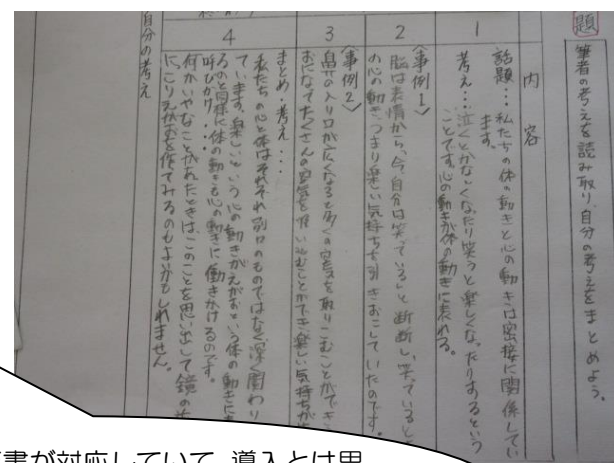 題
筆者の考えを読み取り、自分の考えをまとめよう。
内容
1
話題…私たちの体の動きと心の動きは密接に関係してい
ます。
考え…泣くとかなしくなったり笑うと楽しくなったりするという
ことです。心の動きが体の動きに表れる。
2
〈事例1〉
脳は表情から、今、自分は笑っている」と判断し、笑っているとき
の心の動き、つまり楽しい気持ちを引きおこしていたのです。
3
〈事例2〉
鼻の入り口が広くなると多くの空気を取りこむことができ
えがおになってたくさんの空気を吸い込むことができ、楽しい気持ちが
4
まとめ・考え…
私たちの心と体はそれぞれ別々のものではなく深く関わり
ています。楽しいという心の動きがえがおという体の動きに
るのと同様に体の動きも心の動きに働きかけるのです。
呼びかけ…
何かいやなことがあったときは、このことを思い出して鏡の
にっこりえがおを作てみるのもよいかもしれません。
自分の考え
書が対応していて、導入とは思